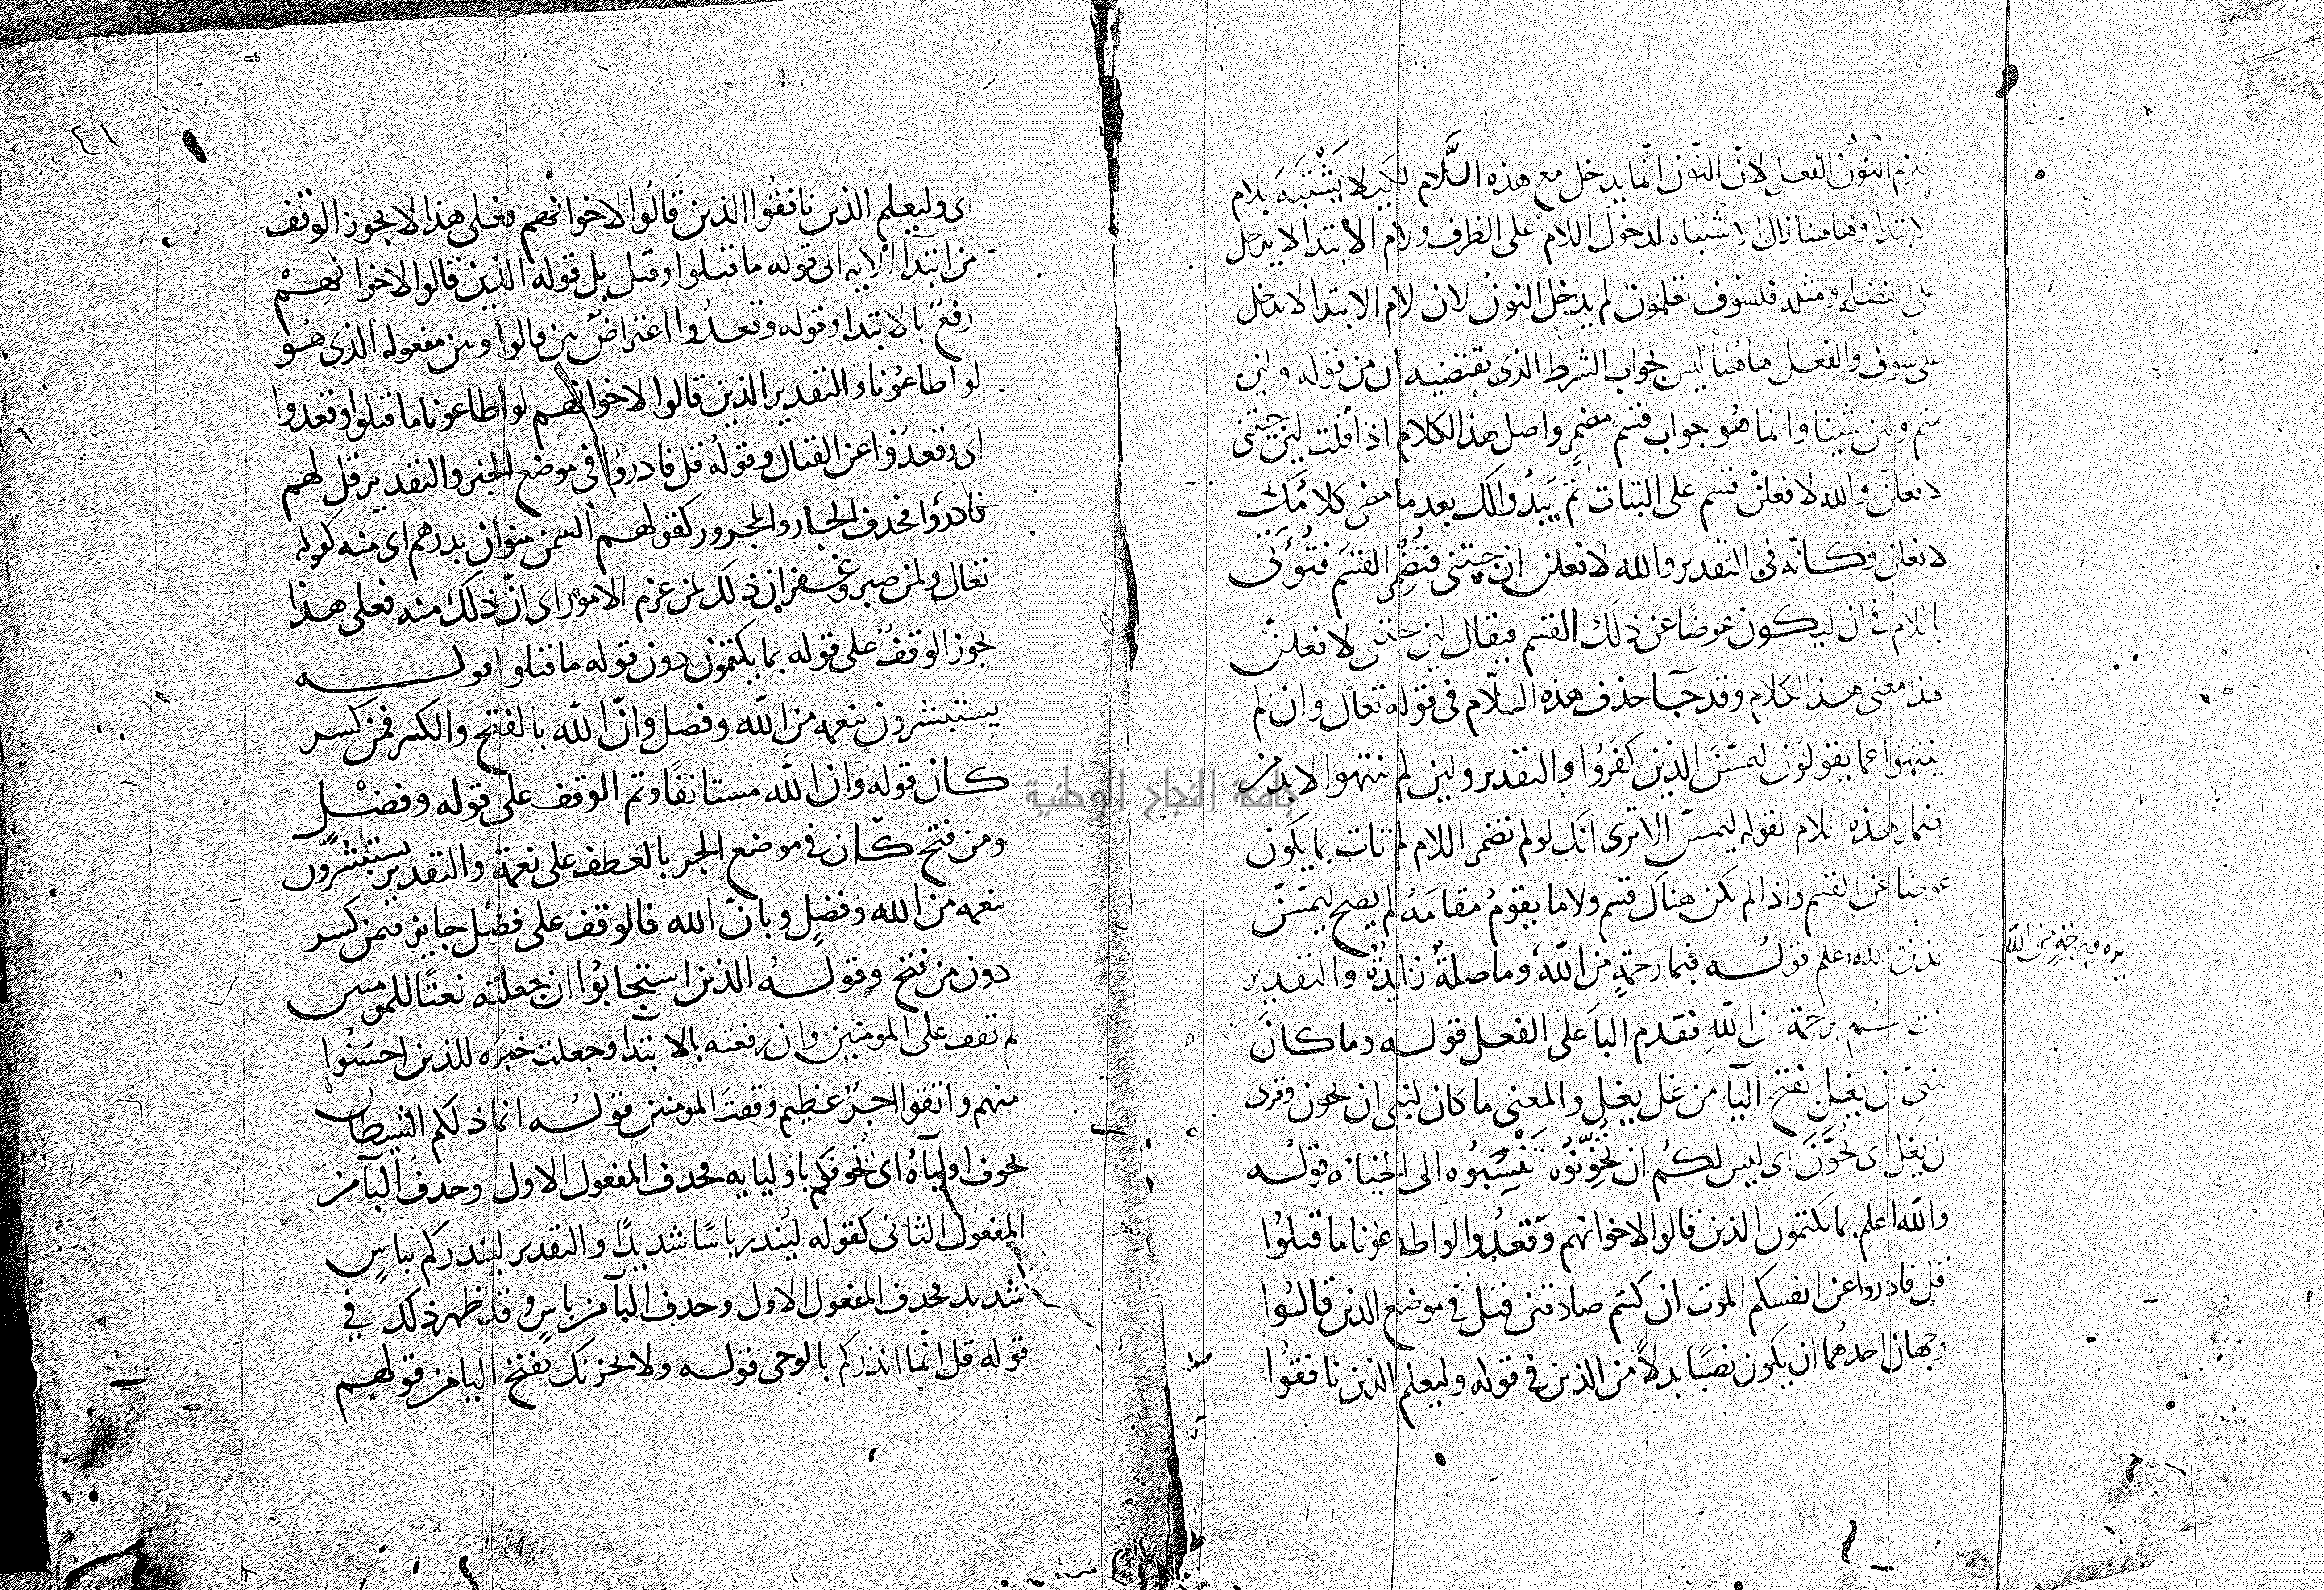 النون الفعل لانّ النّون انّما يدخل مع هذه اللَّام لكيلا يَشْتَبَهَ بلام
الابتدا وهاهنا زال الاشتباه لدخول اللام على الظرف ولام الابتدا لا يدخل
على الفضله ومثله فلسوف تعلمون لم يدخل النون لان لام الابتدا لا يدخل
على سوف والفعل هاهُنا ليس لجواب الشرط الذى يقتضيه ان من قوله ولين
متم ولين شينا وانما هُو جواب قسم مضمرٍ واصل هذا الكلام اذا قلت لين جيتنى
لافعلنّ والله لافعلنّ قسم على البتات ثمّ يَبدُوا لك بعد ما مضى كلامُك
لافعلن فكانّه فى التقدير والله لافعلن ان جيتنى فتُضْمِر القسَم فتُوتى
باللام فى ان ليكون عوضًا عن ذلك القسم فيقال لين جيتنى لافعلنّ
هذا معنى هذا الكلام وقد جآ حذف هذه اللّام فى قوله تعالى وان لم
ينتهُوا عما يقولُون ليمسّنَ الذين كفَرُوا والتقدير ولين لم ينتهوا لابد من
اضمار هذه اللام لقوله ليمسّنّ الا ترى انك لو لم تضمر اللام لم تات بما يكون
عوضًا عن القسم واذا لم يكن هناك قسم ولا ما يقومُ مقامَهُ لم يصح ليمسّنّ
الذين والله اعلم قولُه فبما رحمةٍ من الله وما صلةٌ زايدةٌ والتقدير
لنت لهُم برحمة من اللهِ فقدم البآ على الفعل قوله وما كانَ
لنبى ان يغل بفتح اليآ من غل يغِل والمعنى ما كان لنبى ان يخون وقرى
ان يغل اى يُخوَّنَ اى ليس لكُم ان تُخوِّنُوه تَنْسِبُوه الى الخيانه قولُه
والله اعلم بما يكتمون الذين قالوا لاخوانهم وَقعدُوا لو اطاعونا ما قتلُوا
قل فادروا عن انفسكم الموت ان كنتم صادقين قيل فى موضع الذين قالُوا
وجهان احدهُما ان يكون نصبًا بدلًا من الذين فى قوله وليعلم الذين نافقُوا
من اللّه
٤٦
اى وليعلم الذين نافقُوا الذين قَالُوا لاخوانهم فعلى هذا لا يجوز الوقف
من ابتدآ الايه الى قوله ما قتلوا وقيل بل قوله الذين قالوا لاخوانهمْ
رفعٌ بالابتدا وقوله وقعدُوا اعتراضٌ بين قالوا وبين مفعوله الذى هُو
لو اطاعُونا والتقدير الذين قالوا لاخوانهم لو اطاعونا ما قتلوا وقعدوا
اى وقعدُوا عن القتال وقولُه قل فادروُا فى موضع الخبر والتقدير قل لهم
فادروُا فحذف الجار والمجرور كقولهم السمن منوان بدرهم اى منه كقوله
تعالى ولمن صبر وغفر ان ذلك لمن عزم الامور اى انّ ذلك منه فعلى هذا
يجوز الوقفُ على قوله بما يكتمون دون قوله ما قتلوا قوله
يستبشرون بنعمه من اللّه وفضل وانّ اللّه بالفتح والكسر فمن كسر
كان قوله وان اللَّه مستانفًا وتم الوقف على قوله وفضْلٍ
ومن فتح كان فى موضع الجر بالعطف على نعمة والتقدير يستبشرون
بنعمه من الله وفضلٍ وبانّ الله فالوقف على فضْل جايز فيمن كسر
دون من فتح وقولُه الذين استجابُوا ان جعلته نعتًا للمومنين
لم تقف على المومنين وان رفعته بالابتدا وجعلت خبرَه للذين احسَنُوا
منهم واتقوا اجرٌ عظيم وقفتَ المومنين قولُه انما ذلكم الشيطان
يخوف اوليآهُ اى يُخوفكم باوليايه فحذف المفعول الاول وحذف البآ من
المفعول الثانى كقوله ليُنذر باسًا شديدًا والتقدير لينذركم بباسٍ
شديد فحذف المفعول الاول وحذف البآ من باسٍ وقد ظهر ذلك فى
قوله قل انّما انذركم بالوحى قوله ولا يحزنك بفتح اليا من قولهم
جامعة النجاح الوطنية